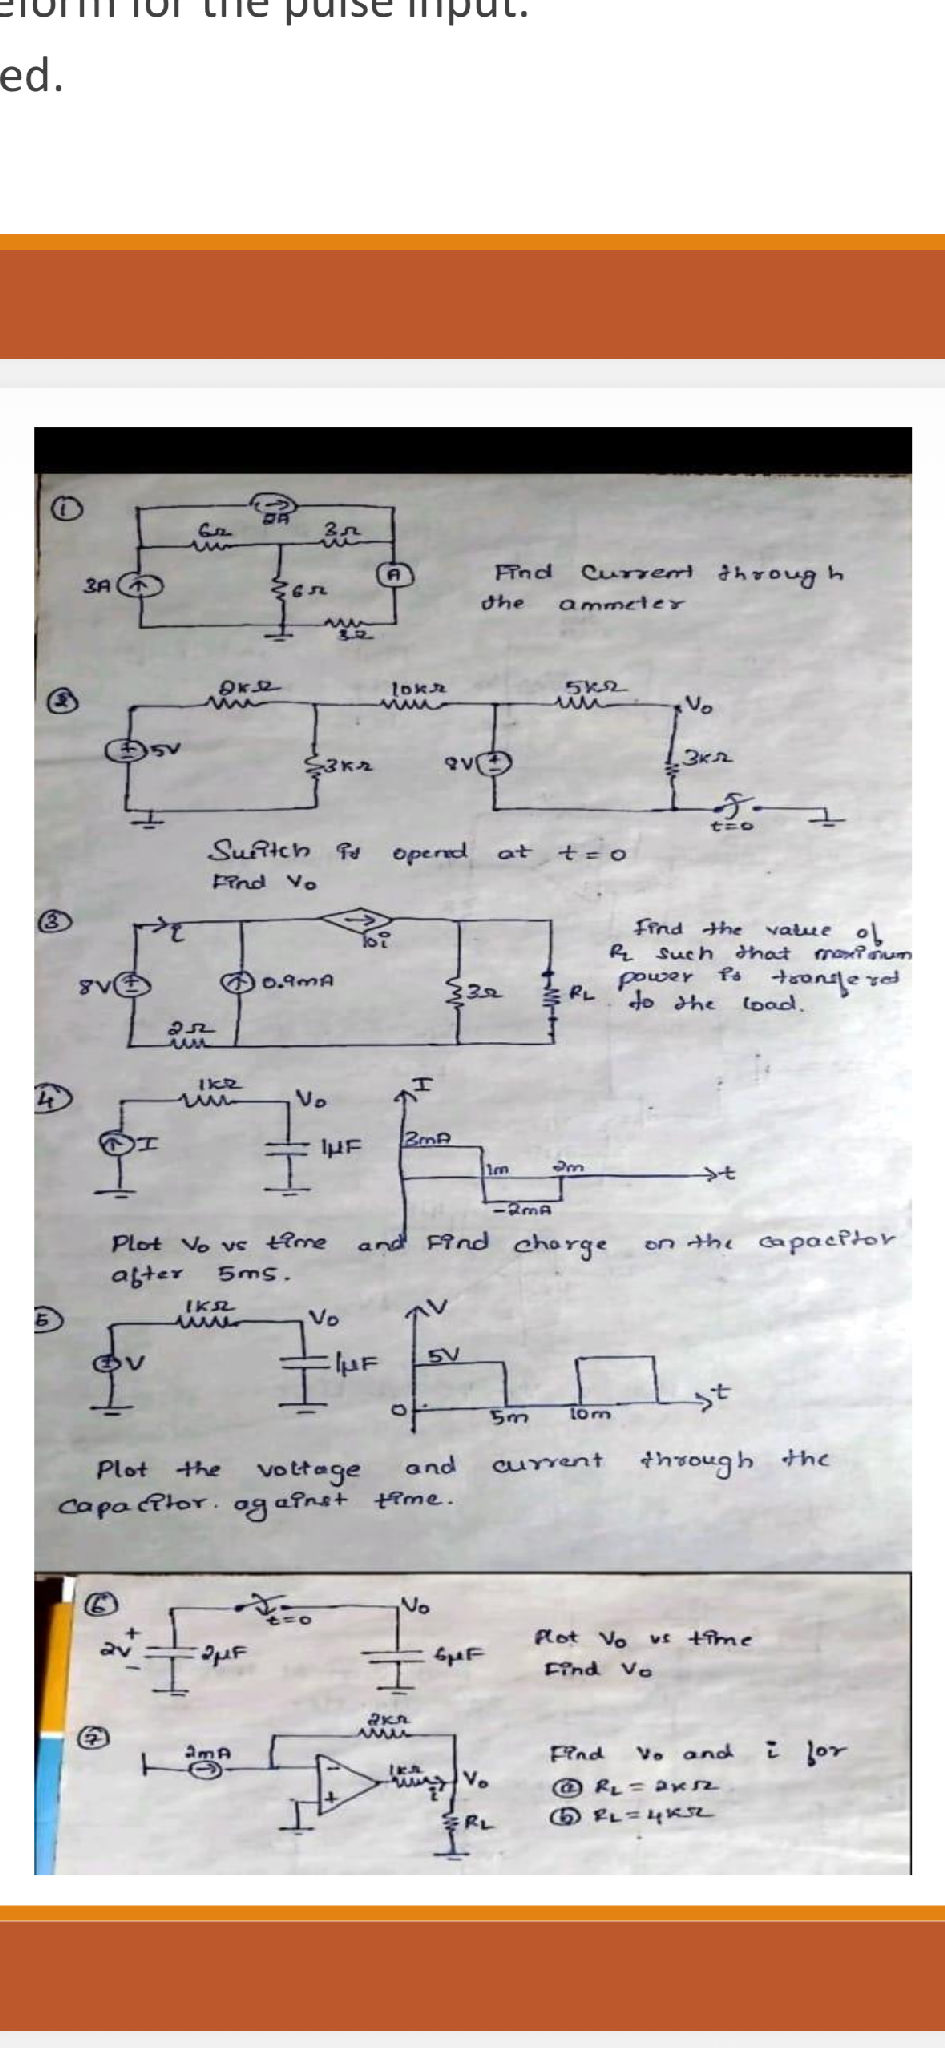 eform for the pulse input.
ed.
①
6Ω
3Ω
3A
A
6Ω
3Ω
Find current through
the ammeter
②
2KΩ
10KΩ
5KΩ
Vo
5V
3KΩ
3KΩ
t=0
Switch is opened at t=0
Find Vo
③
i
10i
Find the value of
RL such that maximum
power is transfered
to the load.
8V
0.9mA
3Ω
RL
2Ω
4
1KΩ
Vo
I
I
1μF
3mA
1m
2m
t
-2mA
Plot Vo vs time and Find charge on the capacitor
after 5ms.
5
1KΩ
Vo
V
V
1μF
5V
0
5m
10m
t
Plot the voltage and current through the
capacitor. against time.
⑥
t=0
Vo
+
2V
-
2μF
6μF
Plot Vo vs time
Find Vo
⑦
2KΩ
2mA
-
+
1KΩ
i
Vo
RL
Find Vo and i for
ⓐ RL = 2KΩ
ⓑ RL = 4KΩ